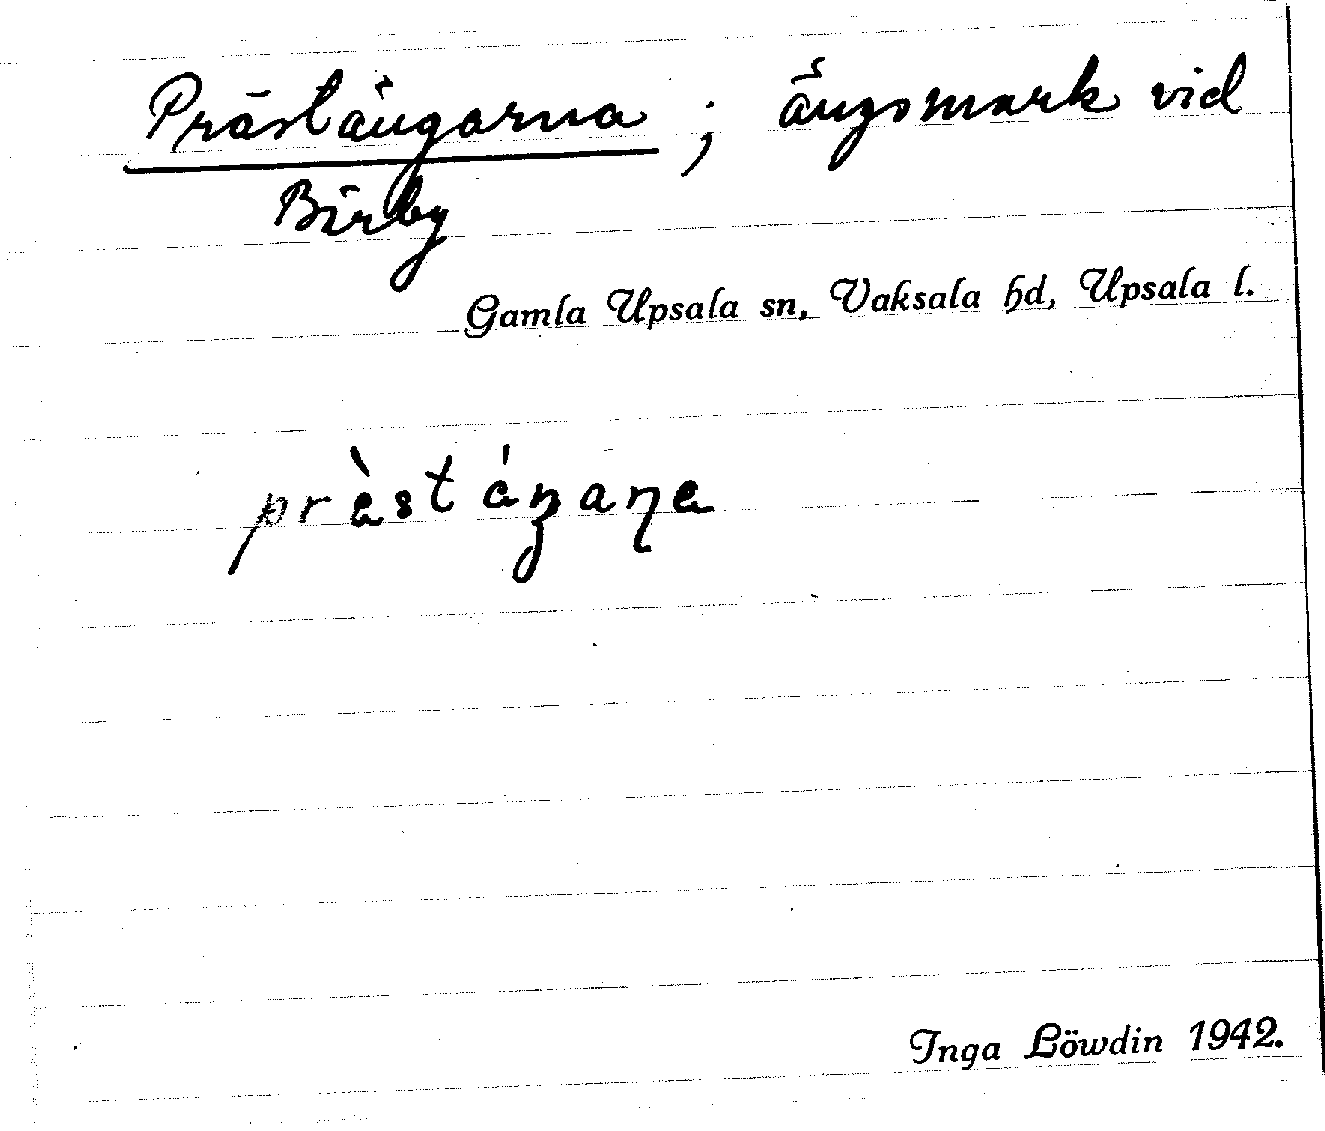 Prästängarna ; ängsmark vid
Bärby
Gamla Upsala sn, Vaksala hd, Upsala l.
prὰstáŋaɳa
Inga Löwdin 1942.